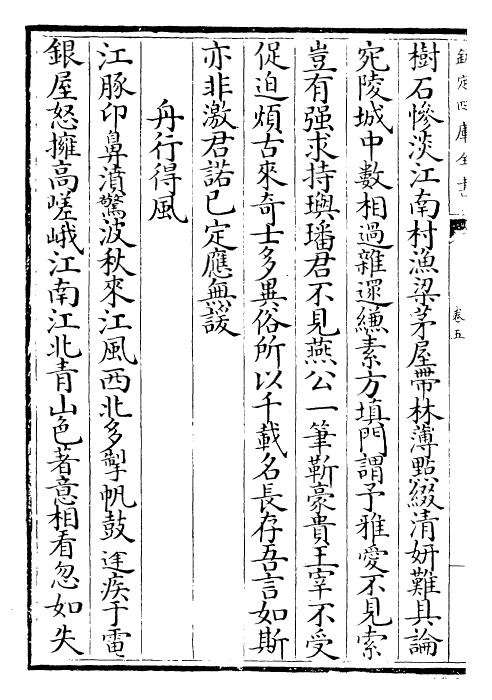 欽定四庫全書
卷五
樹石慘淡江南村漁梁茅屋帶林薄點綴清妍難具論
宛陵城中數相過雜遝縑素方填門謂予雅愛不見索
豈有强求持璵璠君不見燕公一筆靳豪貴王宰不受
促迫煩古來奇士多異俗所以千載名長存吾言如斯
亦非激君諾已定應無諼
舟行得風
江豚卬鼻濆驚波秋來江風西北多掣帆鼓𨑳疾于電
銀屋怒擁高嵯峨江南江北青山色著意相看忽如失